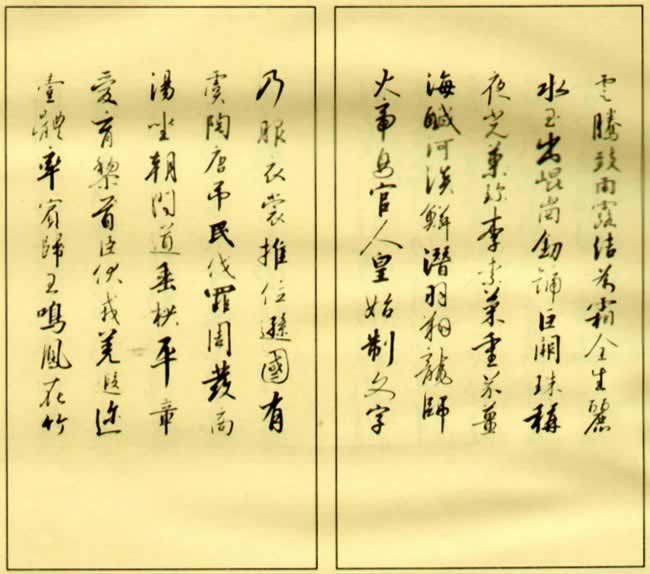 雲騰致雨露結為霜金生麗
水玉出崐崗劍號巨闕珠稱
夜光菓珍李柰菜重芥薑
海鹹河淡鱗潛羽翔龍師
火帝鳥官人皇始制文字
乃服衣裳推位遜國有
虞陶唐吊民伐罪周發商
湯坐朝問道垂拱平章
愛育黎首臣伏戎羌遐迩
壹體率賓歸王鳴鳳在竹